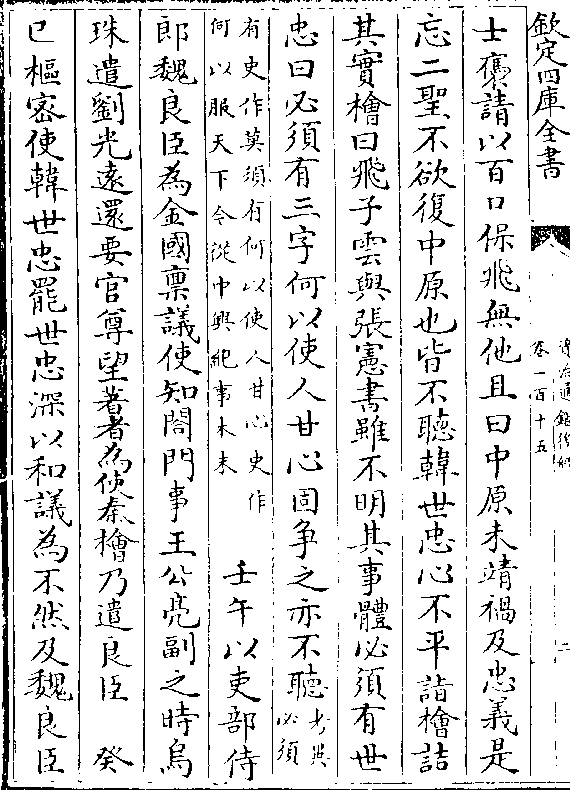 欽定四庫全書
卷一百十五
二
士㒟請以百口保飛無他且曰中原未靖禍及忠義是
忘二聖不欲復中原也皆不聽韓世忠心不平詣檜詰
其實檜曰飛子雲與張憲書雖不明其事體必須有世
忠曰必須有三字何以使人甘心固争之亦不聽考異必須
有史作莫須有何以使人甘心史作
何以服天下今從中興紀事本末
壬午以吏部侍
郎魏良臣為金國稟議使知閤門事王公亮副之時烏
珠遣劉光遠還要官尊望著者為使秦檜乃遣良臣 癸
巳樞密使韓世忠罷世忠深以和議為不然及魏良臣